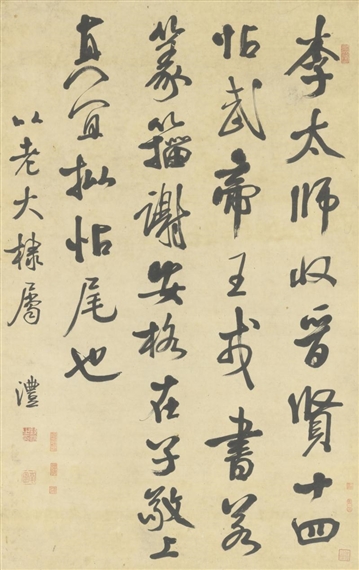 李太師收晉賢十四
帖武帝王戎書若
篆籀謝安格在子敬上
真宜批帖尾也
以老大棣屬 澧